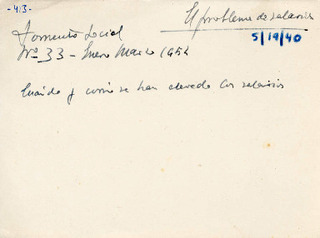 -413-
El problema de salarios
5/19/40
Fomento Social
Nº 33 - Enero Marzo 1954
Cuándo y como se han elevado los salarios